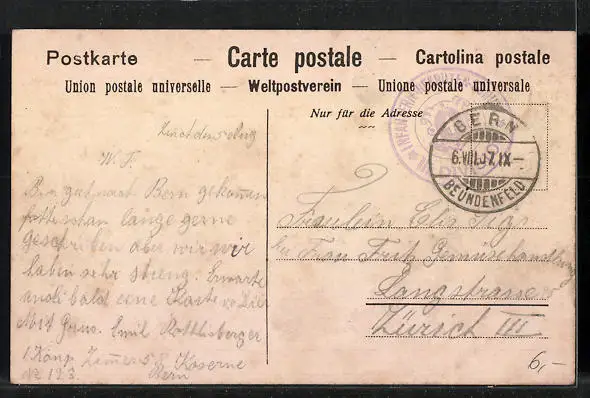 Postkarte — Carte postale — Cartolina postale
Union postale universelle — Weltpostverein — Unione postale universale
Nur für die Adresse
BERN
6.VIII.07.IX–
BEUNDENFELD
W. F.
Bin gut nach Bern gekommen
schon lange gerne
geschrieben aber wir wir
haben sehr streng. Erwarte
auch bald eine Karte v. Dir
Mit Gruss. Emil Röthlisberger
1 Komp. Zimmer 58 Kaserne
No 123. Bern
Fräulein
bei Frau Fritz Gemüsehandlung
Langstrasse
Zürich III
6,-